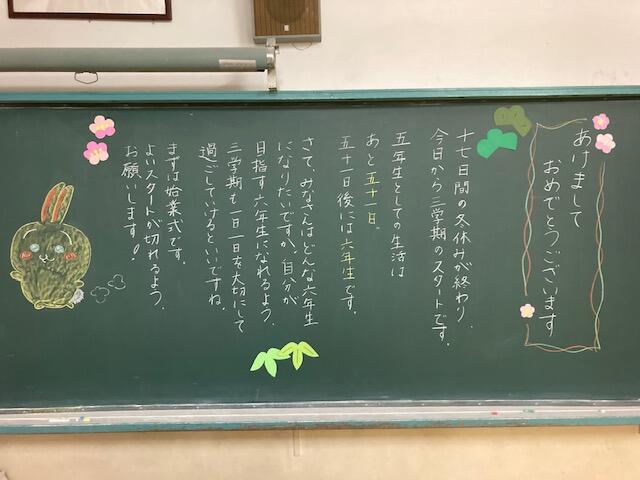 あけまして
おめでとうございます
十七日間の冬休みが終わり、
今日から三学期のスタートです。
五年生としての生活は
あと五十一日。
五十一日後には六年生です。
さて、みなさんはどんな六年生
になりたいですか。自分が
目指す六年生になれるよう、
三学期も一日一日を大切にして
過ごしていけるといいですね。
まずは始業式です。
よいスタートが切れるよう、
お願いします！